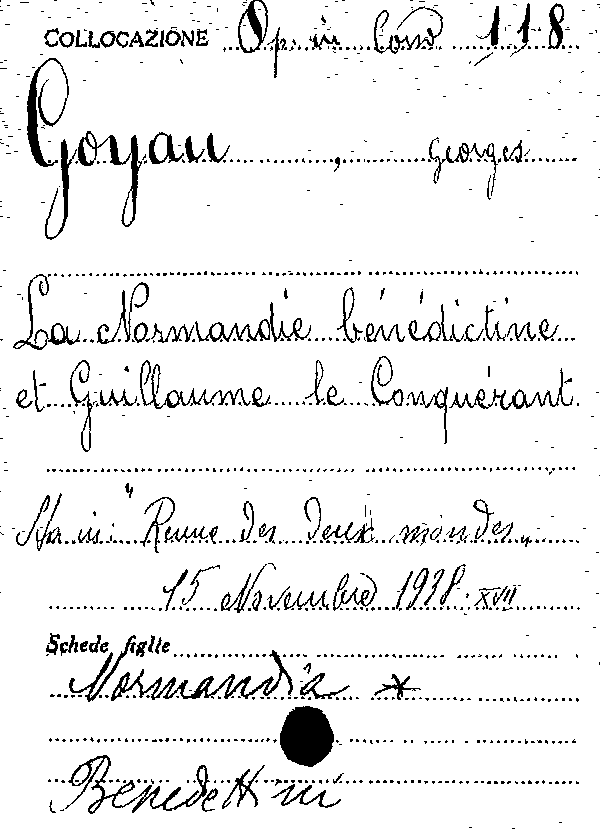 COLLOCAZIONE Op. in 118
Goyau, Georges
La Normandie bénédictine
et Guillaume le Conquérant
Sta in: "Revue des deux mondes„
15 Novembre 1938. XVII
Schede figlie
Normandia *
Benedettini